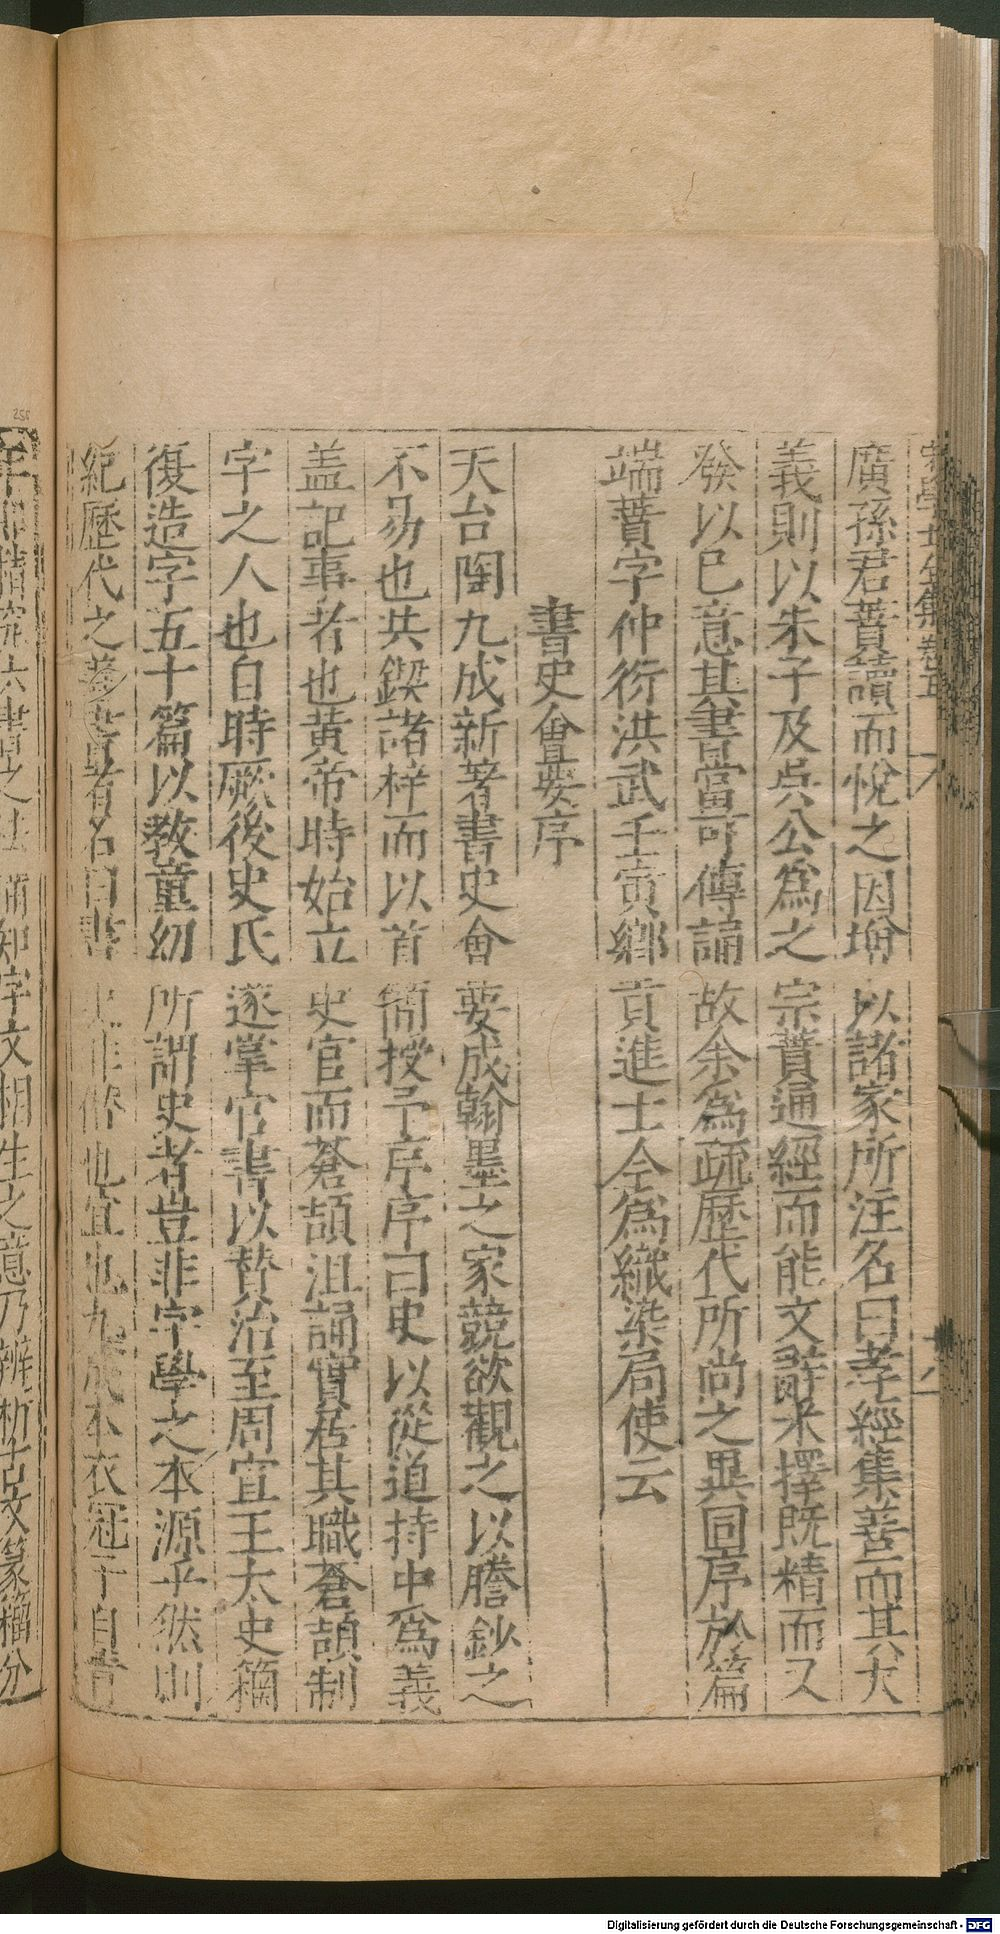 宋學士全集卷五
廣孫君蕡讀而悅之因增以諸家所注名曰孝經集善而其大
義則以朱子及吳公為之宗蕡通經而能文辭采擇既精而又
發以己意其書當可傳誦故余為疏歷代所尚之異同序於篇
端蕡字仲衍洪武壬寅鄉貢進士今為織染局使云
書史會要序
天台陶九成新著書史會要成翰墨之家競欲觀之以謄鈔之
不易也共鍥諸梓而以首簡授予序序曰史以從道持中為義
盖記事者也黃帝時始立史官而蒼頡沮誦實居其職蒼頡制
字之人也自時厥後史氏遂掌官書以贊治至周宣王太史籀
復造字五十篇以教童幼所謂史者豈非字學之本源乎然則
紀歷代之善書者名曰書史非僭也宜也九成本衣冠子自青
年即精究六書之法備知字文相生之意乃辨析古文篆籀分
Digitalisierung gefördert durch die Deutsche Forschungsgemeinschaft - DFG